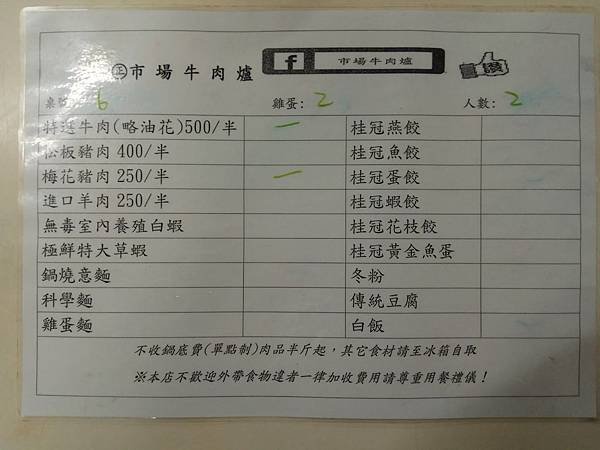 ㊣市場牛肉爐 f 市場牛肉爐 讚
桌號: 6 雞蛋: 2 人數: 2
特選牛肉(略油花)500/半 一 桂冠燕餃
松板豬肉 400/半 桂冠魚餃
梅花豬肉 250/半 一 桂冠蛋餃
進口羊肉 250/半 桂冠蝦餃
無毒室內養殖白蝦 桂冠花枝餃
極鮮特大草蝦 桂冠黃金魚蛋
鍋燒意麵 冬粉
科學麵 傳統豆腐
雞蛋麵 白飯
不收鍋底費(單點制)肉品半斤起，其它食材請至冰箱自取
※本店不歡迎外帶食物違者一律加收費用請尊重用餐禮儀！